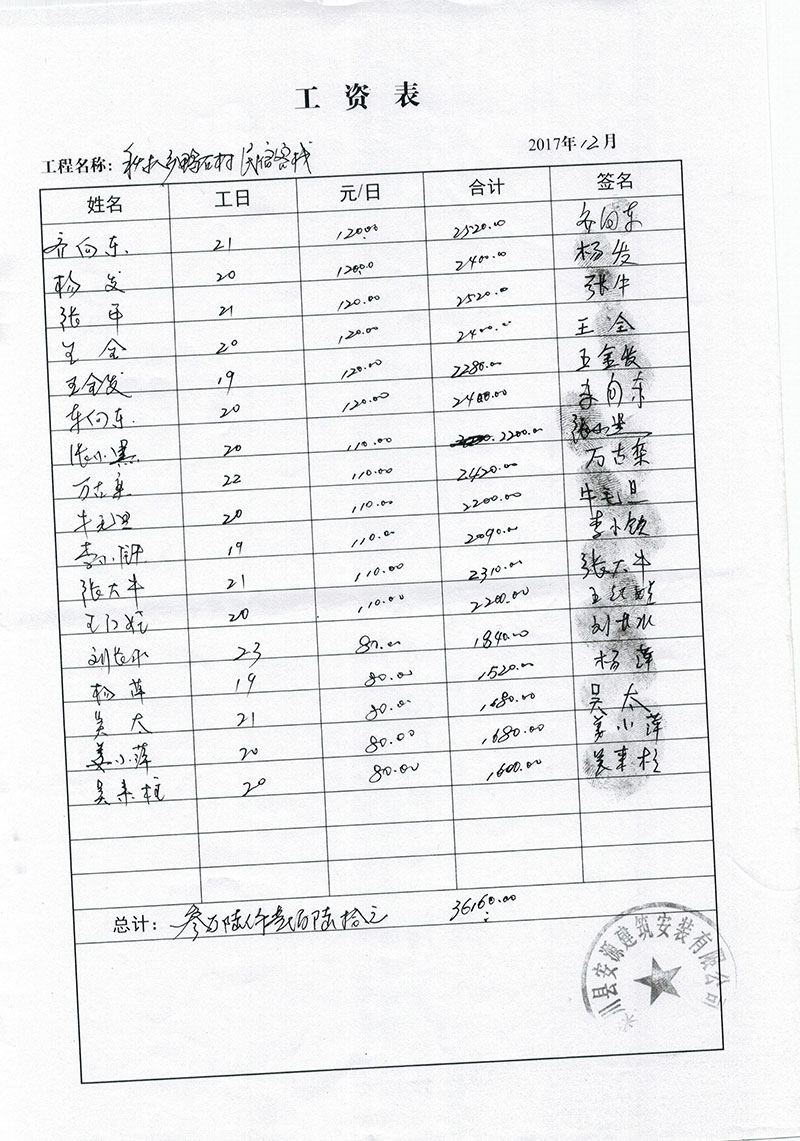 工资表
工程名称： 民宿客栈 2017年12月
姓名 工日 元/日 合计 签名
齐向东 21 120.00 2520.00 齐向东
杨发 20 120.0 2400.00 杨发
张牛 21 120.00 2520.00 张牛
王全 20 120.00 2400.00 王全
王金发 19 120.00 2280.00 王金发
李向东 20 120.00 2400.00 李向东
张小黑 20 110.00 2200.00 张小黑
万古栾 22 110.00 2420.00 万古栾
牛毛旦 20 110.00 2200.00 牛毛旦
李小 19 110.00 2090.00 李小
张大牛 21 110.00 2310.00 张大牛
王 20 110.00 2200.00 王
刘长水 23 80.00 1840.00 刘长水
杨萍 19 80.00 1520.00 杨萍
吴大 21 80.00 1680.00 吴大
姜小萍 20 80.00 1680.00 姜小萍
吴来柱 20 80.00 1600.00 吴来柱
总计： 叁万陆仟壹佰陆拾元 36160.00
川县安源建筑安装有限公司